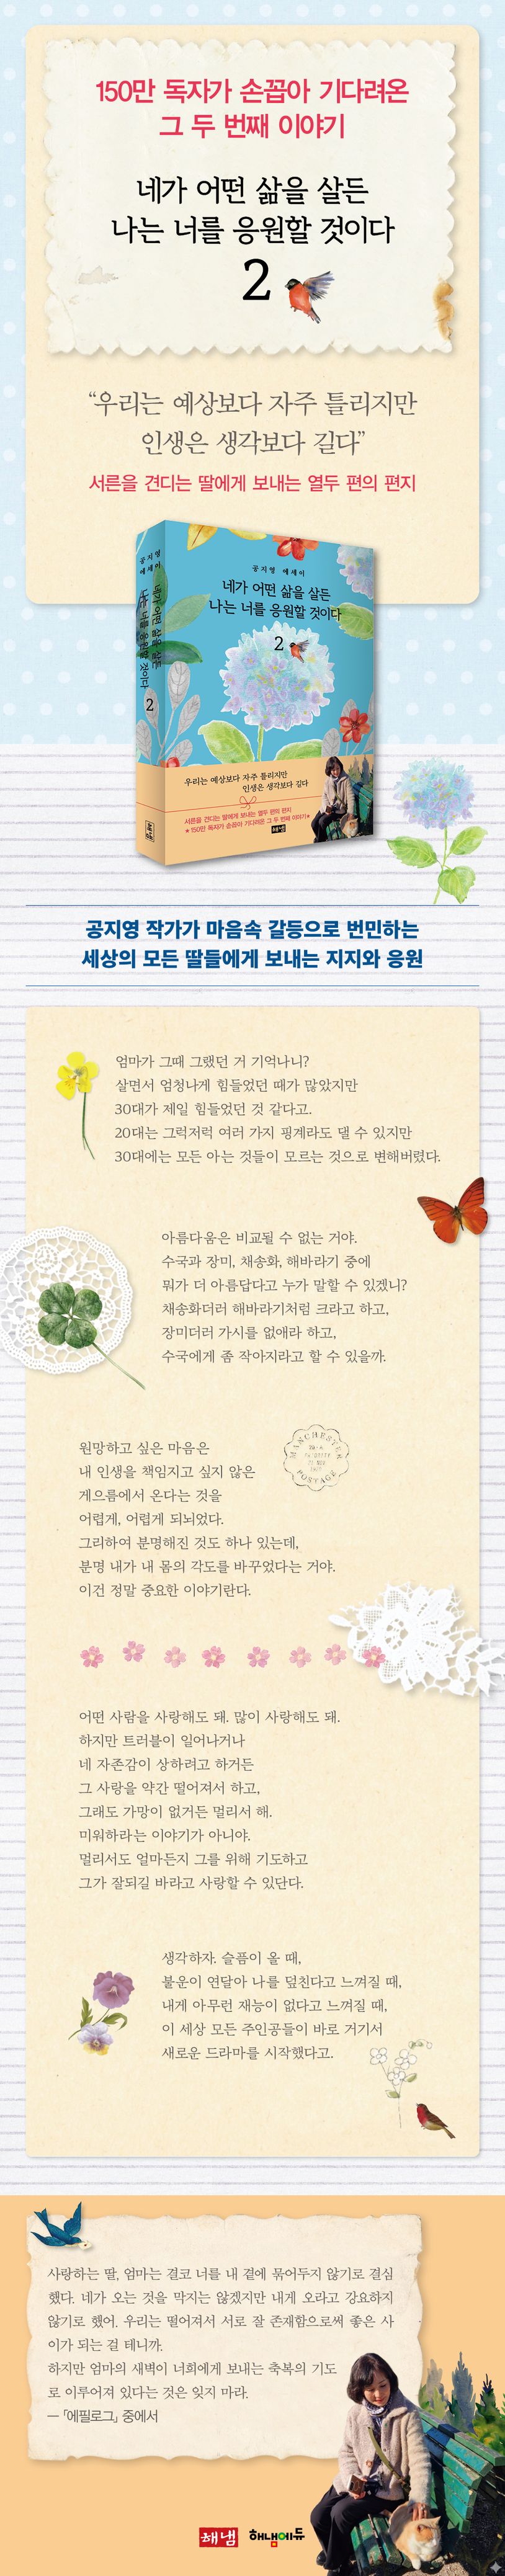 150만 독자가 손꼽아 기다려온
그 두 번째 이야기
네가 어떤 삶을 살든
나는 너를 응원할 것이다
2
“우리는 예상보다 자주 틀리지만
인생은 생각보다 길다”
서른을 견디는 딸에게 보내는 열두 편의 편지
공지영
에세이
네가 어떤 삶을 살든
나는 너를 응원할 것이다
2
해냄
공지영 에세이
네가 어떤 삶을 살든
나는 너를 응원할 것이다
2
우리는 예상보다 자주 틀리지만
인생은 생각보다 길다
서른을 견디는 딸에게 보내는 열두 편의 편지
★150만 독자가 손꼽아 기다려온 그 두 번째 이야기★
해냄
공지영 작가가 마음속 갈등으로 번민하는
세상의 모든 딸들에게 보내는 지지와 응원
엄마가 그때 그랬던 거 기억나니?
살면서 엄청나게 힘들었던 때가 많았지만
30대가 제일 힘들었던 것 같다고.
20대는 그럭저럭 여러 가지 핑계라도 댈 수 있지만
30대에는 모든 아는 것들이 모르는 것으로 변해버렸다.
아름다움은 비교될 수 없는 거야.
수국과 장미, 채송화, 해바라기 중에
뭐가 더 아름답다고 누가 말할 수 있겠니?
채송화더러 해바라기처럼 크라고 하고,
장미더러 가시를 없애라 하고,
수국에게 좀 작아지라고 할 수 있을까.
원망하고 싶은 마음은
내 인생을 책임지고 싶지 않은
게으름에서 온다는 것을
어렵게, 어렵게 되뇌었다.
그리하여 분명해진 것도 하나 있는데,
분명 내가 내 몸의 각도를 바꾸었다는 거야.
이건 정말 중요한 이야기란다.
MANCHESTER
POSTAGE
어떤 사람을 사랑해도 돼. 많이 사랑해도 돼.
하지만 트러블이 일어나거나
네 자존감이 상하려고 하거든
그 사랑을 약간 떨어져서 하고,
그래도 가망이 없거든 멀리서 해.
미워하라는 이야기가 아니야.
멀리서도 얼마든지 그를 위해 기도하고
그가 잘되길 바라고 사랑할 수 있단다.
생각하자. 슬픔이 올 때,
불운이 연달아 나를 덮친다고 느껴질 때,
내게 아무런 재능이 없다고 느껴질 때,
이 세상 모든 주인공들이 바로 거기서
새로운 드라마를 시작했다고.
사랑하는 딸, 엄마는 결코 너를 내 곁에 묶어두지 않기로 결심
했다. 네가 오는 것을 막지는 않겠지만 내게 오라고 강요하지
않기로 했어. 우리는 떨어져서 서로 잘 존재함으로써 좋은 사
이가 되는 걸 테니까.
하지만 엄마의 새벽이 너희에게 보내는 축복의 기도
로 이루어져 있다는 것은 잊지 마라.
─「에필로그」 중에서
해냄 해냄에듀